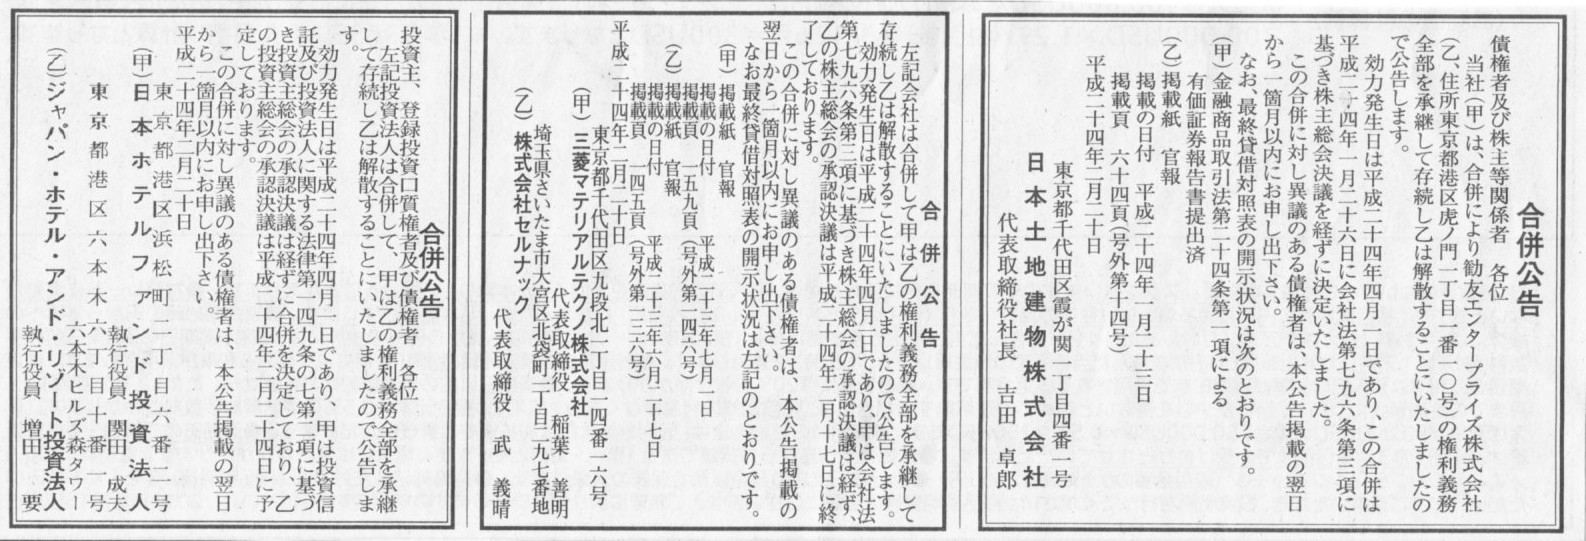 合併公告
債権者及び株主等関係者　各位
当社（甲）は、合併により勧友エンタープライズ株式会社
（乙、住所東京都港区虎ノ門一丁目一番二〇号）の権利義務
全部を承継して存続し乙は解散することにいたしましたの
で公告します。
効力発生日は平成二十四年四月一日であり、この合併は
平成二十四年一月二十六日に会社法第七九六条第三項に
基づき株主総会決議を経ずに決定いたしました。
この合併に対し異議のある債権者は、本公告掲載の翌日
から一箇月以内にお申し出下さい。
なお、最終貸借対照表の開示状況は次のとおりです。
（甲）金融商品取引法第二十四条第一項による
有価証券報告書提出済
（乙）掲載紙　官報
掲載の日付　平成二十四年一月二十三日
掲載頁　六十四頁（号外第十四号）
平成二十四年二月二十日
東京都千代田区霞が関一丁目四番一号
日本土地建物株式会社
代表取締役社長　吉田　卓郎
合併公告
左記会社は合併して甲は乙の権利義務全部を承継して
存続し乙は解散することにいたしましたので公告します。
効力発生日は平成二十四年四月一日であり、甲は会社法
第七九六条第三項に基づき株主総会の承認決議は経ず、
乙の株主総会の承認決議は平成二十四年二月十七日に終
了しております。
この合併に対し異議のある債権者は、本公告掲載の
翌日から一箇月以内にお申し出下さい。
なお最終貸借対照表の開示状況は左記のとおりです。
（甲）掲載紙　官報
掲載の日付　平成二十三年七月一日
掲載頁　一五九頁（号外第一四六号）
（乙）掲載紙　官報
掲載の日付　平成二十三年六月二十七日
掲載頁　一四五頁（号外第一三六号）
平成二十四年二月二十日
東京都千代田区九段北一丁目一四番一六号
（甲）三菱マテリアルテクノ株式会社
代表取締役　稲葉　善明
埼玉県さいたま市大宮区北袋町一丁目二九七番地
（乙）株式会社セルナック
代表取締役　一武　義晴
合併公告
投資主、登録投資口質権者及び債権者　各位
左記投資法人は合併して、甲は乙の権利義務全部を承継
して存続し乙は解散することにいたしましたので公告しま
す。
効力発生日は平成二十四年四月一日であり、甲は投資信
託及び投資法人に関する法律第一四九条の七第二項に基づ
き投資主総会の承認決議は経ずに合併を決定しており、乙
の投資主総会の承認決議は平成二十四年二月二十四日に予
定しております。
この合併に対し異議のある債権者は、本公告掲載の翌日
から一箇月以内にお申し出下さい。
平成二十四年二月二十日
東京都港区浜松町二丁目六番二号
（甲）日本ホテルファンド投資法人
執行役員　関田　成夫
東京都港区六本木六丁目十番一号
六本木ヒルズ森タワー
（乙）ジャパン・ホテル・アンド・リゾート投資法人
執行役員　増田　要